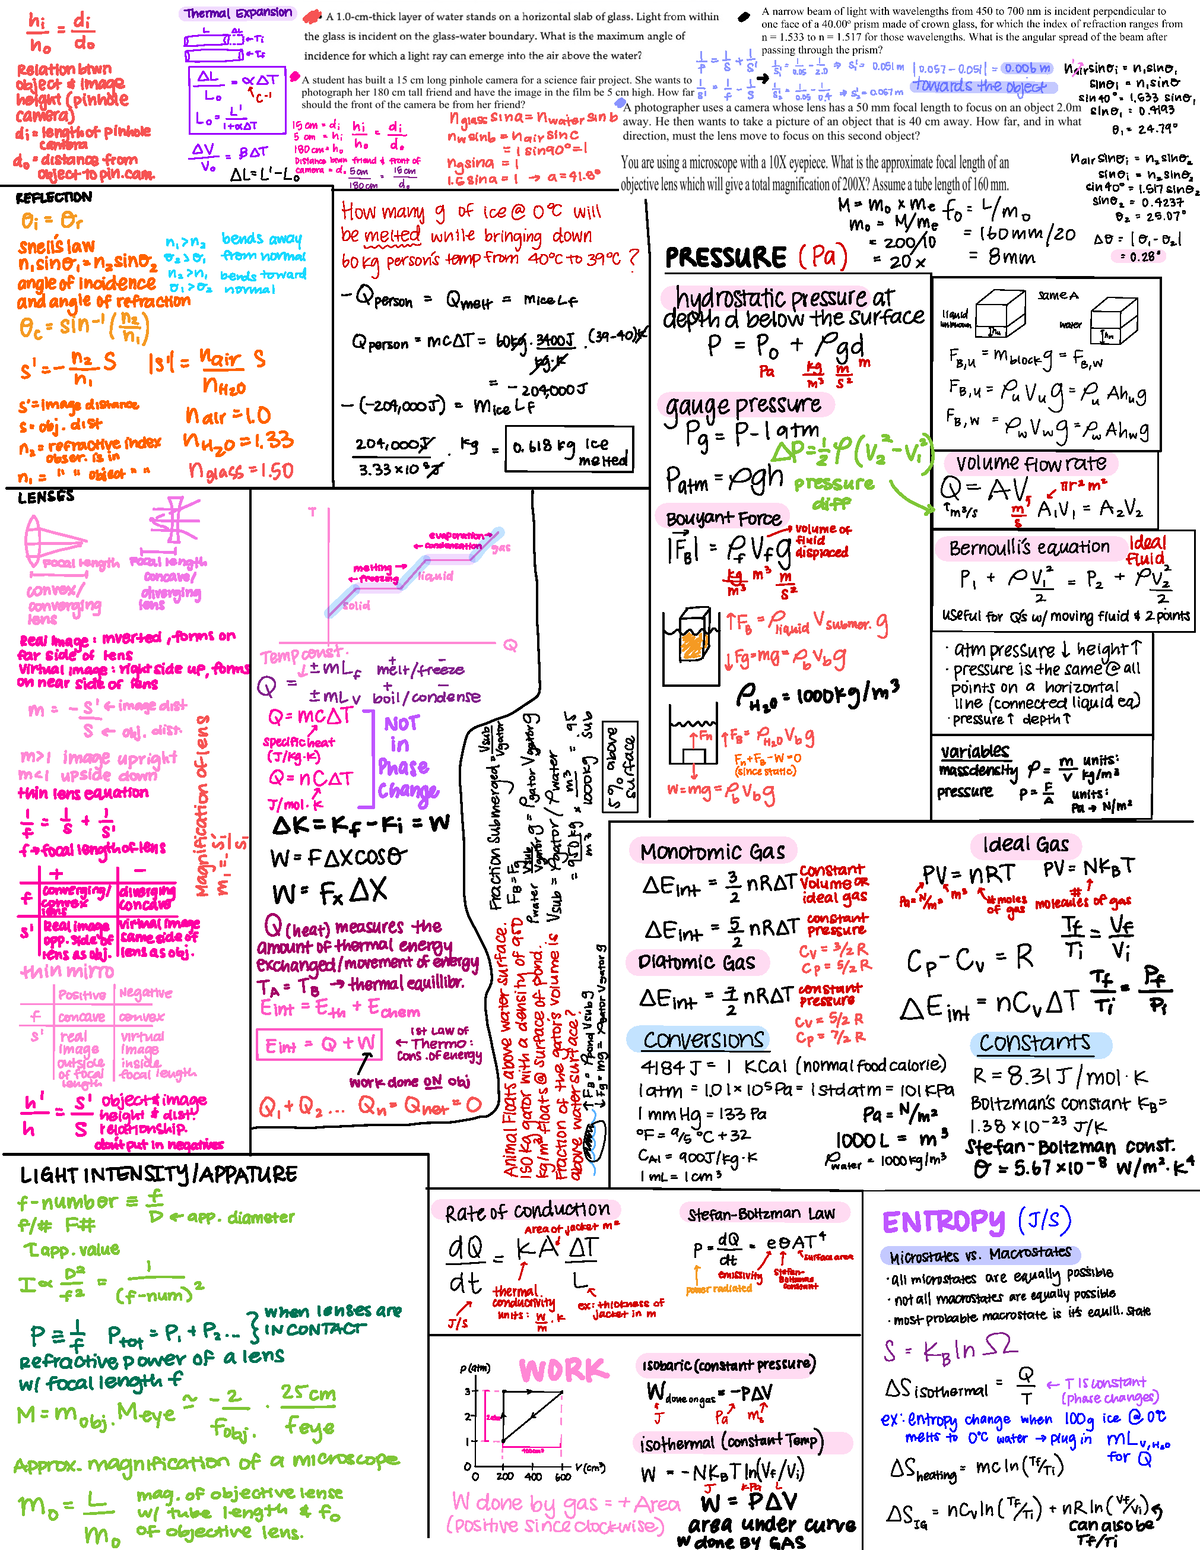 hi/ho = di/do
Relation btwn
object & image
height (pinhole
camera)
di = length of pinhole
camera
do = distance from
object to pin. cam.
Thermal Expansion
L ΔL
Ti
Tf
ΔL/Lo = αΔT
C⁻¹
Lo = L'/(1+αΔT)
ΔV/Vo = βΔT
ΔL = L' - Lo
A 1.0-cm-thick layer of water stands on a horizontal slab of glass. Light from within
the glass is incident on the glass-water boundary. What is the maximum angle of
incidence for which a light ray can emerge into the air above the water?
A student has built a 15 cm long pinhole camera for a science fair project. She wants to
photograph her 180 cm tall friend and have the image in the film be 5 cm high. How far
should the front of the camera be from her friend?
15cm = di
5 cm = hi
180cm = ho
hi/ho = di/do
Distance btwn friend & front of
camera = do
5cm/180cm = 15cm/do
nglass sin a = nwater sin b
nw sin b = nair sin c
= 1 sin 90° = 1
ng sin a = 1
1.5 sin a = 1 → a = 41.8°
A narrow beam of light with wavelengths from 450 to 700 nm is incident perpendicular to
one face of a 40.00° prism made of crown glass, for which the index of refraction ranges from
n = 1.533 to n = 1.517 for those wavelengths. What is the angular spread of the beam after
passing through the prism?
1/f = 1/s + 1/s'
1/s' = 1/0.05 - 1/2.0 ⇒ s' = 0.051m
|0.057 - 0.051| = 0.006 m
1/s' = 1/f - 1/s
1/s' = 1/0.05 - 1/0.4 ⇒ s' = 0.057m
Towards the object
A photographer uses a camera whose lens has a 50 mm focal length to focus on an object 2.0m
away. He then wants to take a picture of an object that is 40 cm away. How far, and in what
direction, must the lens move to focus on this second object?
You are using a microscope with a 10X eyepiece. What is the approximate focal length of an
objective lens which will give a total magnification of 200X? Assume a tube length of 160 mm.
M = mo × me
mo = M/me
= 200/10
= 20×
fo = L/mo
= 160mm/20
= 8mm
nair sinθi = n1 sinθ1
sinθi = n1 sinθ
sin40° = 1.533 sinθ1
sinθ1 = 0.4193
θ1 = 24.79°
nair sinθi = n2 sinθ2
sinθi = n2 sinθ2
sin40° = 1.517 sinθ2
sinθ2 = 0.4237
θ2 = 25.07°
Δθ = |θ1 - θ2|
= 0.28°
REFLECTION
θi = θr
Snell's law
n1 sinθ1 = n2 sinθ2
angle of incidence
and angle of refraction
n1 > n2 bends away
θ2 > θ1 from normal
n2 > n1 bends toward
θ1 > θ2 normal
θc = sin⁻¹(n2/n1)
s' = -n2/n1 s
|s'| = nair/nH2O s
s' = image distance
s = obj. dist
n2 = refractive index
obser. is in
n1 = " " object " "
nair = 1.0
nH2O = 1.33
nglass = 1.50
How many g of ice @ 0°C will
be melted while bringing down
60kg person's temp from 40°C to 39°C ?
- Qperson = Qmelt = mice Lf
Qperson = mcΔT = 60kg · 3400J/kg·K (39-40)K
= -204,000 J
- (-204,000 J) = mice Lf
204,000J/3.33×10⁵J · kg = 0.618 kg ice
melted
PRESSURE (Pa)
hydrostatic pressure at
depth d below the surface
P = Po + ρgd
Pa kg/m³ m/s² m
gauge pressure
Pg = P - 1 atm
ΔP = ½ρ(V2² - V1²)
Patm = ρgh
pressure
diff
Bouyant Force
|FB| = ρf Vf g
volume of
fluid
displaced
kg/m³ m³ m/s²
↑FB = ρliquid Vsubmer. g
↓Fg = mg = ρb Vb g
ρH2O = 1000kg/m³
↑Fn ↑FB = ρH2O Vb g
Fn + FB - W = 0
(since static)
W = mg = ρb Vb g
same A
liquid
unknown
hu
water
hw
FB,u = mblock g = FB,w
FB,u = ρu Vu g = ρu Ahu g
FB,w = ρw Vw g = ρw Ahw g
volume flow rate
Q = AV
πr² m²
m³/s m/s
A1V1 = A2V2
Bernoulli's equation
Ideal
fluid
P1 + ρV1²/2 = P2 + ρV2²/2
useful for Q's w/ moving fluid & 2 points
· atm pressure ↓ height ↑
· pressure is the same @ all
points on a horizontal
line (connected liquid eq)
· pressure ↑ depth ↑
variables
mass density ρ = m/V units: kg/m³
pressure P = F/A units:
Pa → N/m²
LENSES
Focal length
Focal length
convex/
converging
lens
concave/
diverging
lens
Real Image: inverted, forms on
far side of lens
Virtual image: right side up, forms
on near side of lens
m = -s'/s
← image dist
← obj. dist.
m>1 image upright
m<1 upside down
thin lens equation
1/f = 1/s + 1/s'
f → focal length of lens
Magnification of lens
m1 = -s1'/s1
+ -
f converging/
convex
lens
diverging
concave
s' Real image
opp. side of
lens as obj.
Virtual image
same side of
lens as obj.
thin mirro
Positive Negative
f concave convex
s' real
image
outside
of focal
length
virtual
image
inside
focal length
h'/h = s'/s
object & image
height & dist.
relationship.
don't put in negatives
T
Q
evaporation →
← condensation
gas
melting →
← freezing
liquid
solid
Temp const.
Q = ±mLf melt/freeze
±mLv boil/condense
+ -
+ -
Q = mcΔT
specific heat
(J/kg·K)
Q = nCΔT
J/mol·K
NOT
in
Phase
Change
ΔK = Kf - Ki = W
W = FΔXcosθ
W = Fx ΔX
Q (heat) measures the
amount of thermal energy
exchanged/movement of energy
TA = TB → thermal equilibr.
Eint = Eth + Echem
Eint = Q + W
← 1st Law of
Thermo:
Cons. of energy
work done ON obj
Q1 + Q2 ... Qn = Qnet = 0
Animal Floats above water surface.
150 kg gator with a density of 950
kg/m³ floats @ surface of pond.
Fraction of the gator's volume is
above water surface?
FB = ρpond Vsub g
↓Fg = mg = ρgator Vgator g
Fraction submerged = Vsub/Vgator
FB = Fg
ρwater Vsub g = ρgator Vgator g
Vsub/Vgator = ρgator/ρwater
= 950kg/m³ × m³/1000kg = .95 sub
5% above
surface
Monotomic Gas
ΔEint = 3/2 nRΔT
constant
volume OR
ideal gas
ΔEint = 5/2 nRΔT
constant
pressure
Cv = 3/2 R
Cp = 5/2 R
Diatomic Gas
ΔEint = 7/2 nRΔT
constant
pressure
Cv = 5/2 R
Cp = 7/2 R
Ideal Gas
PV = nRT
PV = NKBT
Pa = N/m² m³
# moles
of gas
#
molecules of gas
Tf/Ti = Vf/Vi
Cp - Cv = R
Tf/Ti = Pf/Pi
ΔEint = nCvΔT
Conversions
4184 J = 1 KCal (normal food calorie)
1 atm = 1.01 × 10⁵ Pa = 1 std atm = 101 KPa
1 mm Hg = 133 Pa
Pa = N/m²
°F = 9/5 °C + 32
1000 L = m³
CAl = 900J/kg·K
ρwater = 1000kg/m³
1 mL = 1 cm³
Constants
R = 8.31 J/mol·K
Boltzman's constant KB =
1.38 × 10⁻²³ J/K
Stefan-Boltzman const.
σ = 5.67 × 10⁻⁸ W/m²·K⁴
LIGHT INTENSITY/APPATURE
f-number ≡ f/D
← app. diameter
f/# F#
app. value
I ∝ D²/f² = 1/(f-num)²
P ≡ 1/f
Ptot = P1 + P2 ...
when lenses are
IN CONTACT
Refractive power of a lens
w/ focal length f
M = mobj. Meye ≃ -L/fobj. 25cm/feye
Approx. magnification of a microscope
mo = L/mo
mag. of objective lense
w/ tube length & fo
of objective lens.
Rate of conduction
Area of jacket m²
dQ/dt = KA ΔT/L
J/s
thermal
conductivity
units: W/m·K
ex: thickness of
jacket in m
Stefan-Boltzman Law
P = dQ/dt = eσAT⁴
power radiated
emissivity
Stefan-
Boltzmans
constant
surface area
P (atm)
3
2
1
0
0 200 400 600 V (cm³)
WORK
W done by gas = + Area
(positive since clockwise)
isobaric (constant pressure)
Wdone on gas = -PΔV
J Pa m³
isothermal (constant Temp)
W = -NKBT ln(Vf/Vi)
J kPa L
W = PΔV
area under curve
W done BY GAS
ENTROPY (J/S)
Microstates vs. Macrostates
· all microstates are equally possible
· not all macrostates are equally possible
· most probable macrostate is its equill. state
S = KB ln Ω
ΔSisothermal = Q/T
← T is constant
(phase changes)
ex: entropy change when 100g ice @ 0°C
melts to 0°C water → plug in mLv,H2O
for Q
ΔSheating = mc ln(Tf/Ti)
ΔSIG = nCv ln(Tf/Ti) + nR ln(Vf/Vi)
can also be
Tf/Ti